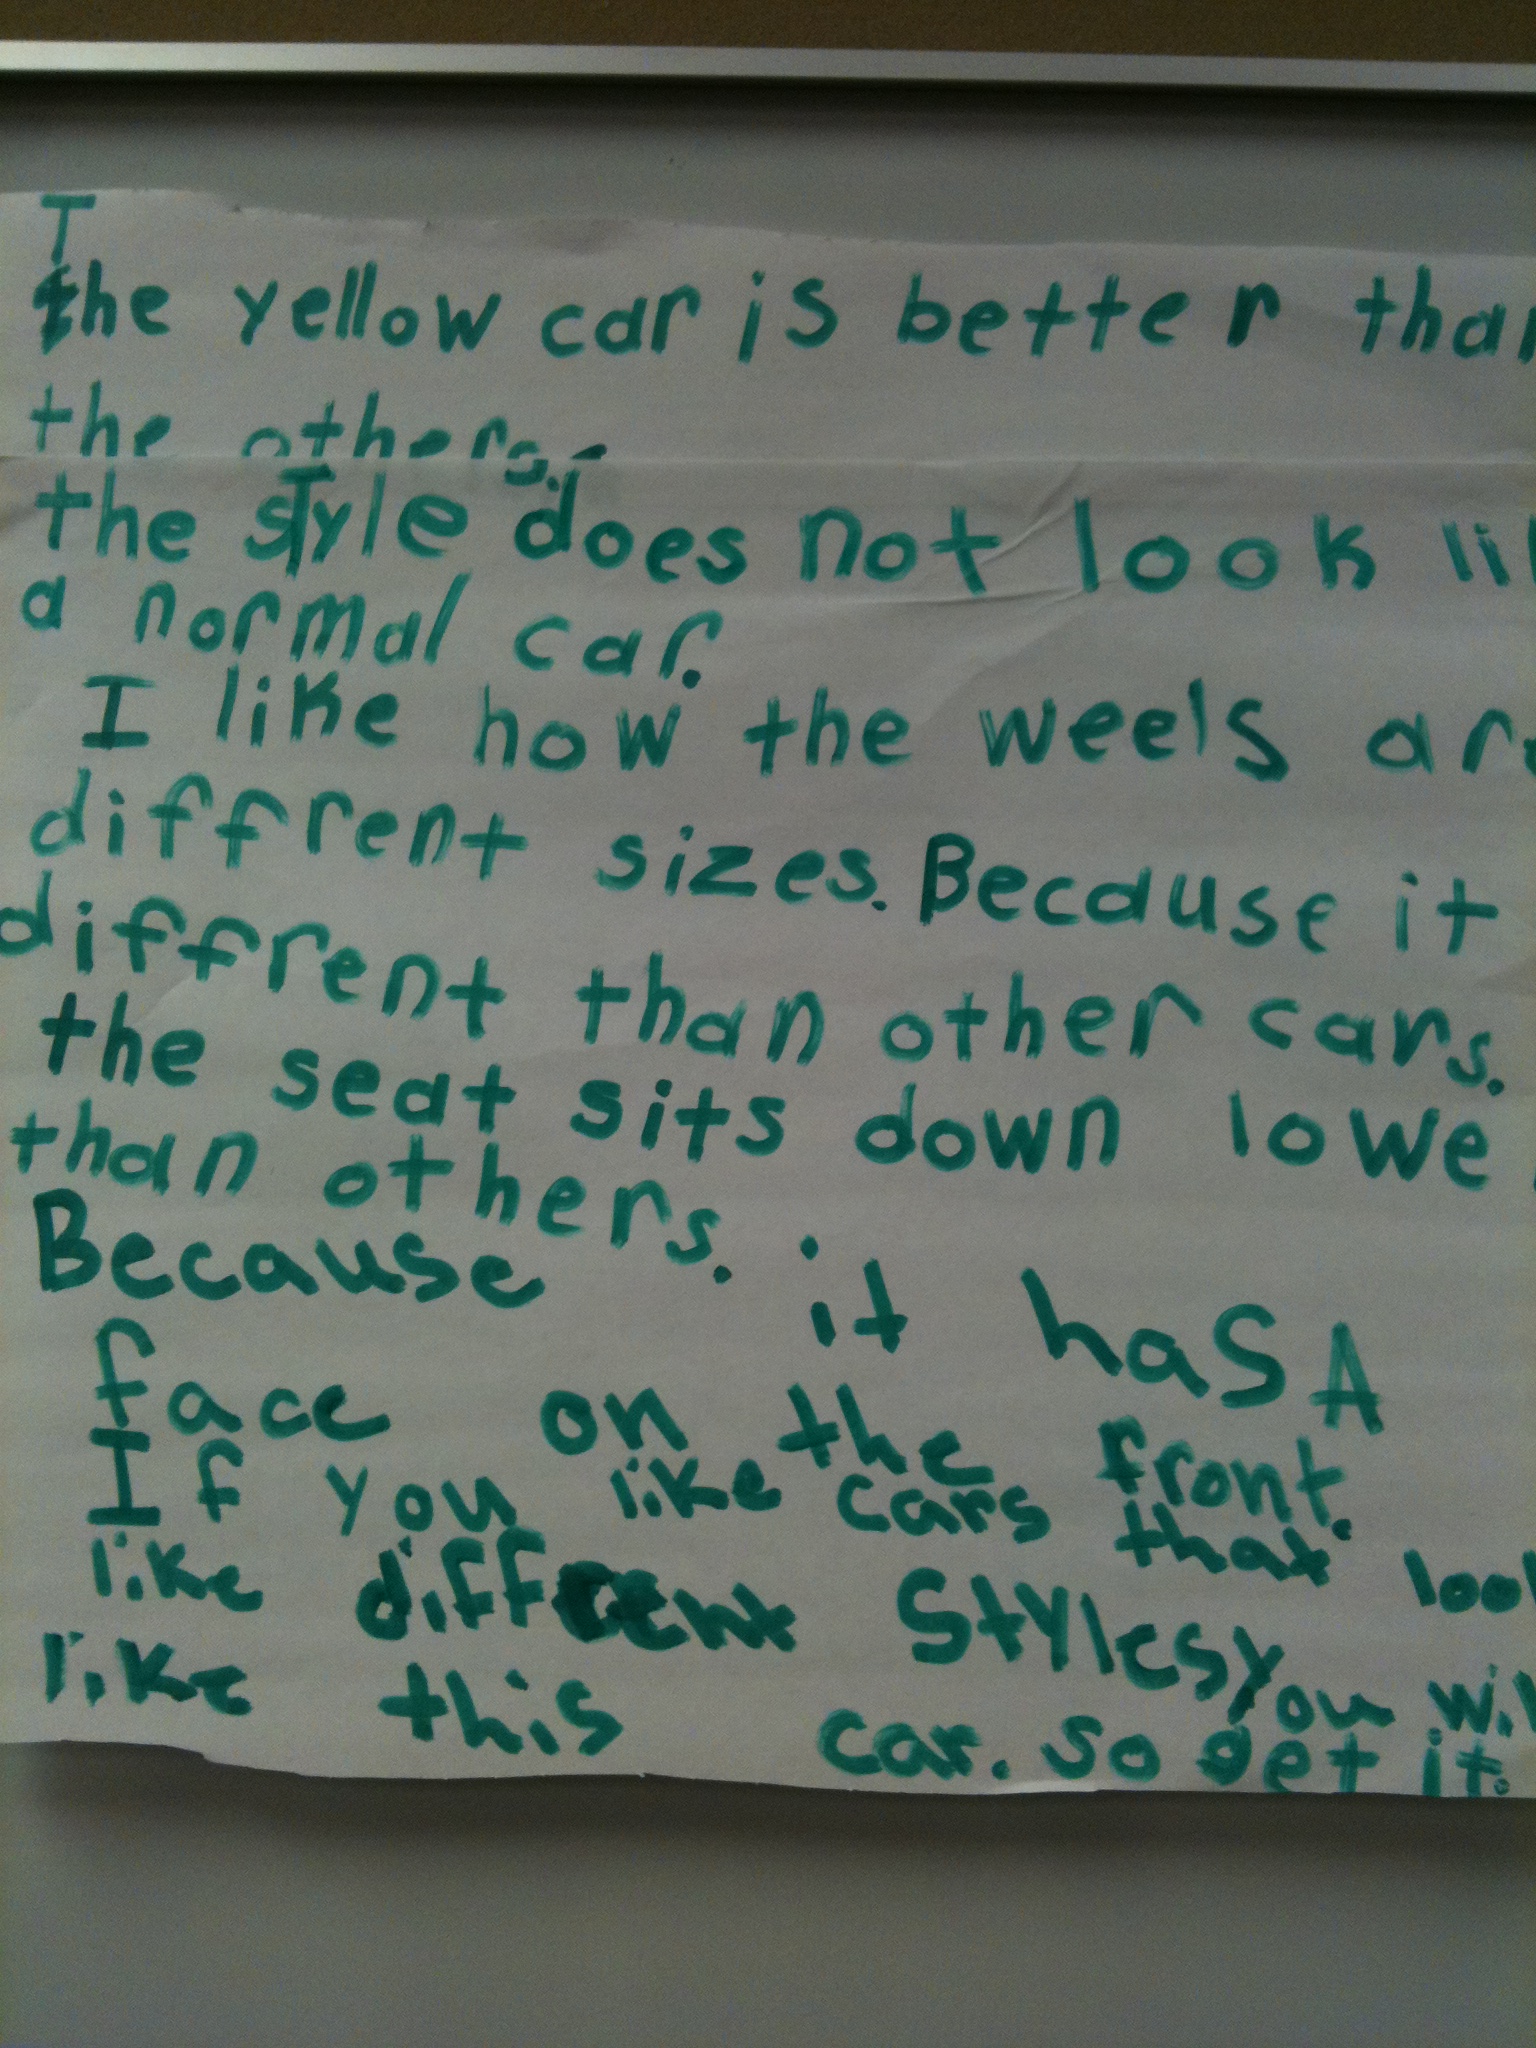 The yellow car is better than
the others.
the sTyle does not look li
a normal car.
I like how the weels are
diffrent sizes. Because it
diffrent than other cars.
the seat sits down lowe
than others.
Because it hasA
face on the front.
If you like cars that look
like diffrent Styles you will
like this car. so get it.